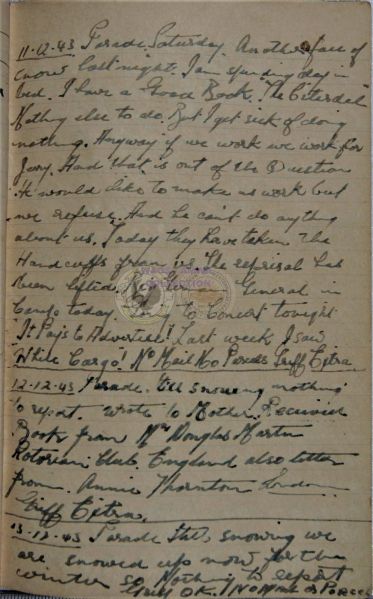 11-12-43 Parade Saturday. Another fall of
snow last night. I am spending day in
bed. I have a Good Book. "The Citerdel"
Nothing else to do. But I get sick of doing
nothing. Anyway if we work we work for
Jerry. And that is out of the Question
He would like to make us work but
we refuse. And he can't do anything
about us. Today they have taken the
Handcuffs from us. The reprisal has
been lifted. General in
Camp today. to Concert tonight
"It Pays to Advertise" Last week I saw
White Cargo! No Mail No Parcels Griff Extra.
12-12-43 Parade. Still snowing nothing
to report. Wrote to Mother. Received
Book from Mr Douglas Martin
Rotorian Club, England also letter
from Annie Thornton London
Griff Extra.
13-12-43 Parade Still snowing we
are snowed up now for the
winter so Nothing to report
Griff OK. No Mail or Parcels